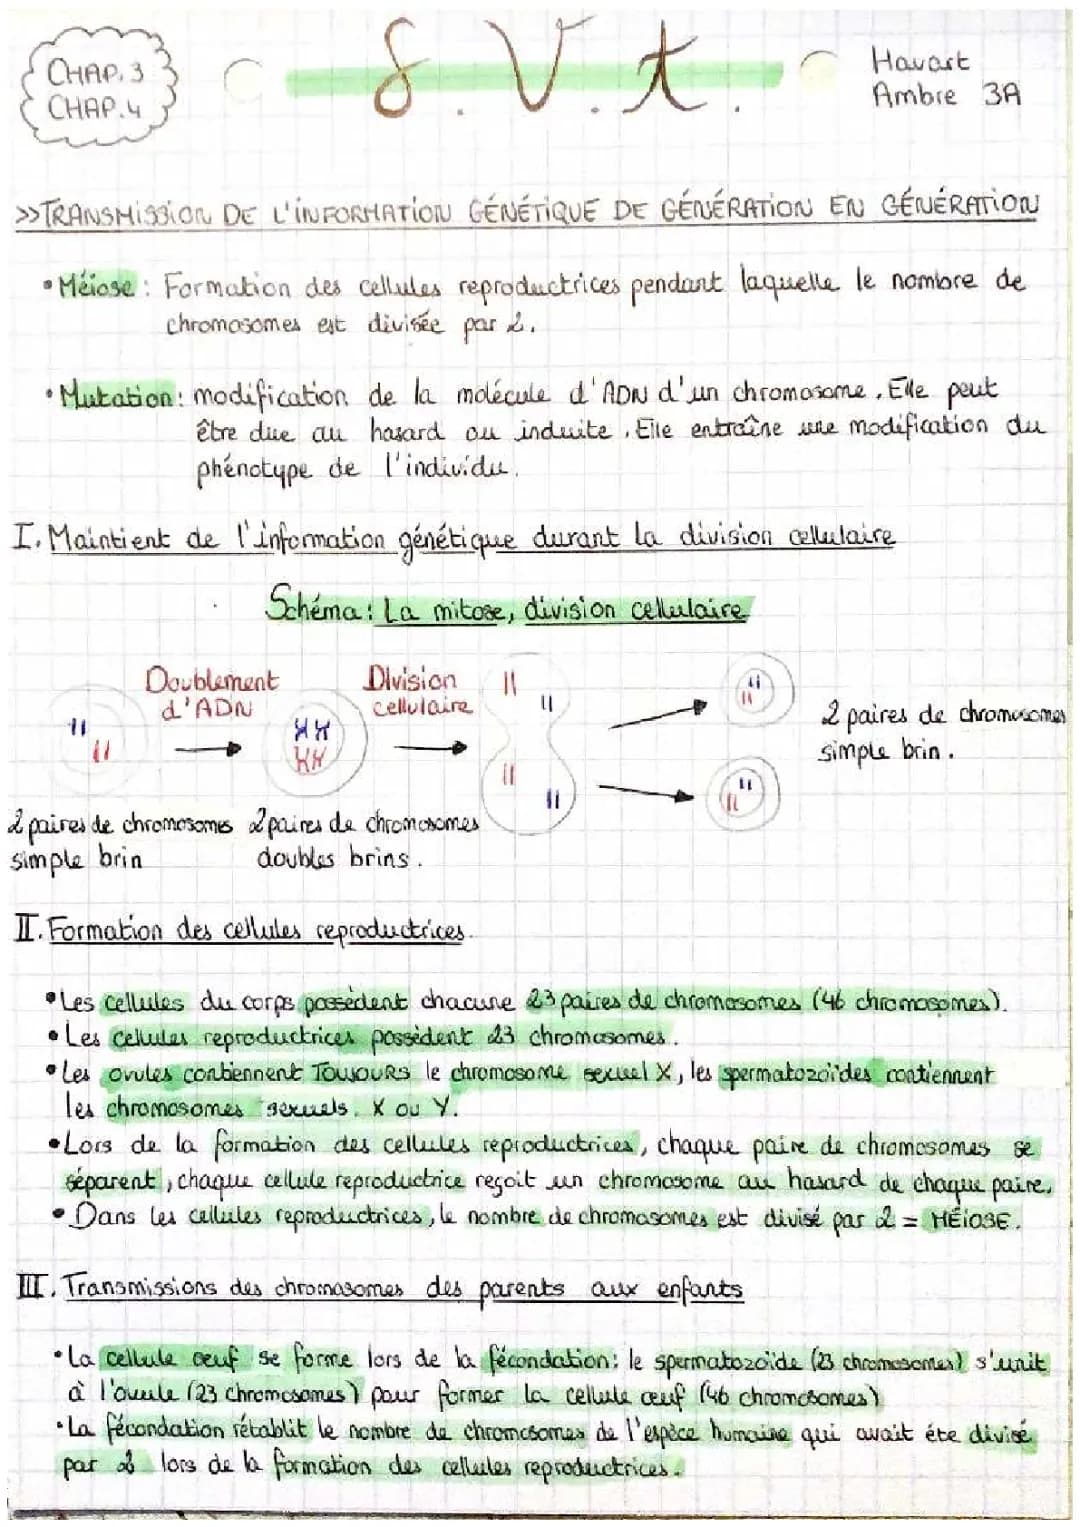 CHAP.3
CHAP.4
S.V.t.
Havart
Ambre 3A
>>TRANSMISSION DE L'INFORMATION GÉNÉTIQUE DE GÉNÉRATION EN GÉNÉRATION
• Méiose : Formation des cellules reproductrices pendant laquelle le nombre de
chromosomes est divisée par 2.
• Mutation : modification de la molécule d'ADN d'un chromosome. Elle peut
être due au hasard ou induite. Elle entraîne une modification du
phénotype de l'individu.
I. Maintient de l'information génétique durant la division cellulaire
Schéma : La mitose, division cellulaire
Doublement
d'ADN
Division
cellulaire
2 paires de chromosomes
simple brin.
2 paires de chromosomes
simple brin
2 paires de chromosomes
doubles brins.
II. Formation des cellules reproductrices.
• Les cellules du corps possèdent chacune 23 paires de chromosomes (46 chromosomes).
• Les cellules reproductrices possèdent 23 chromosomes.
• Les ovules contiennent TOUJOURS le chromosome sexuel X, les spermatozoïdes contiennent
les chromosomes sexuels X ou Y.
• Lors de la formation des cellules reproductrices, chaque paire de chromosomes se
séparent, chaque cellule reproductrice reçoit un chromosome au hasard de chaque paire.
• Dans les cellules reproductrices, le nombre de chromosomes est divisé par 2 = MÉIOSE.
III. Transmissions des chromosomes des parents aux enfants
• La cellule œuf se forme lors de la fécondation : le spermatozoïde (23 chromosomes) s'unit
à l'ovule (23 chromosomes) pour former la cellule œuf (46 chromosomes)
• La fécondation rétablit le nombre de chromosomes de l'espèce humaine qui avait éte divisé
par 2 lors de la formation des cellules reproductrices.